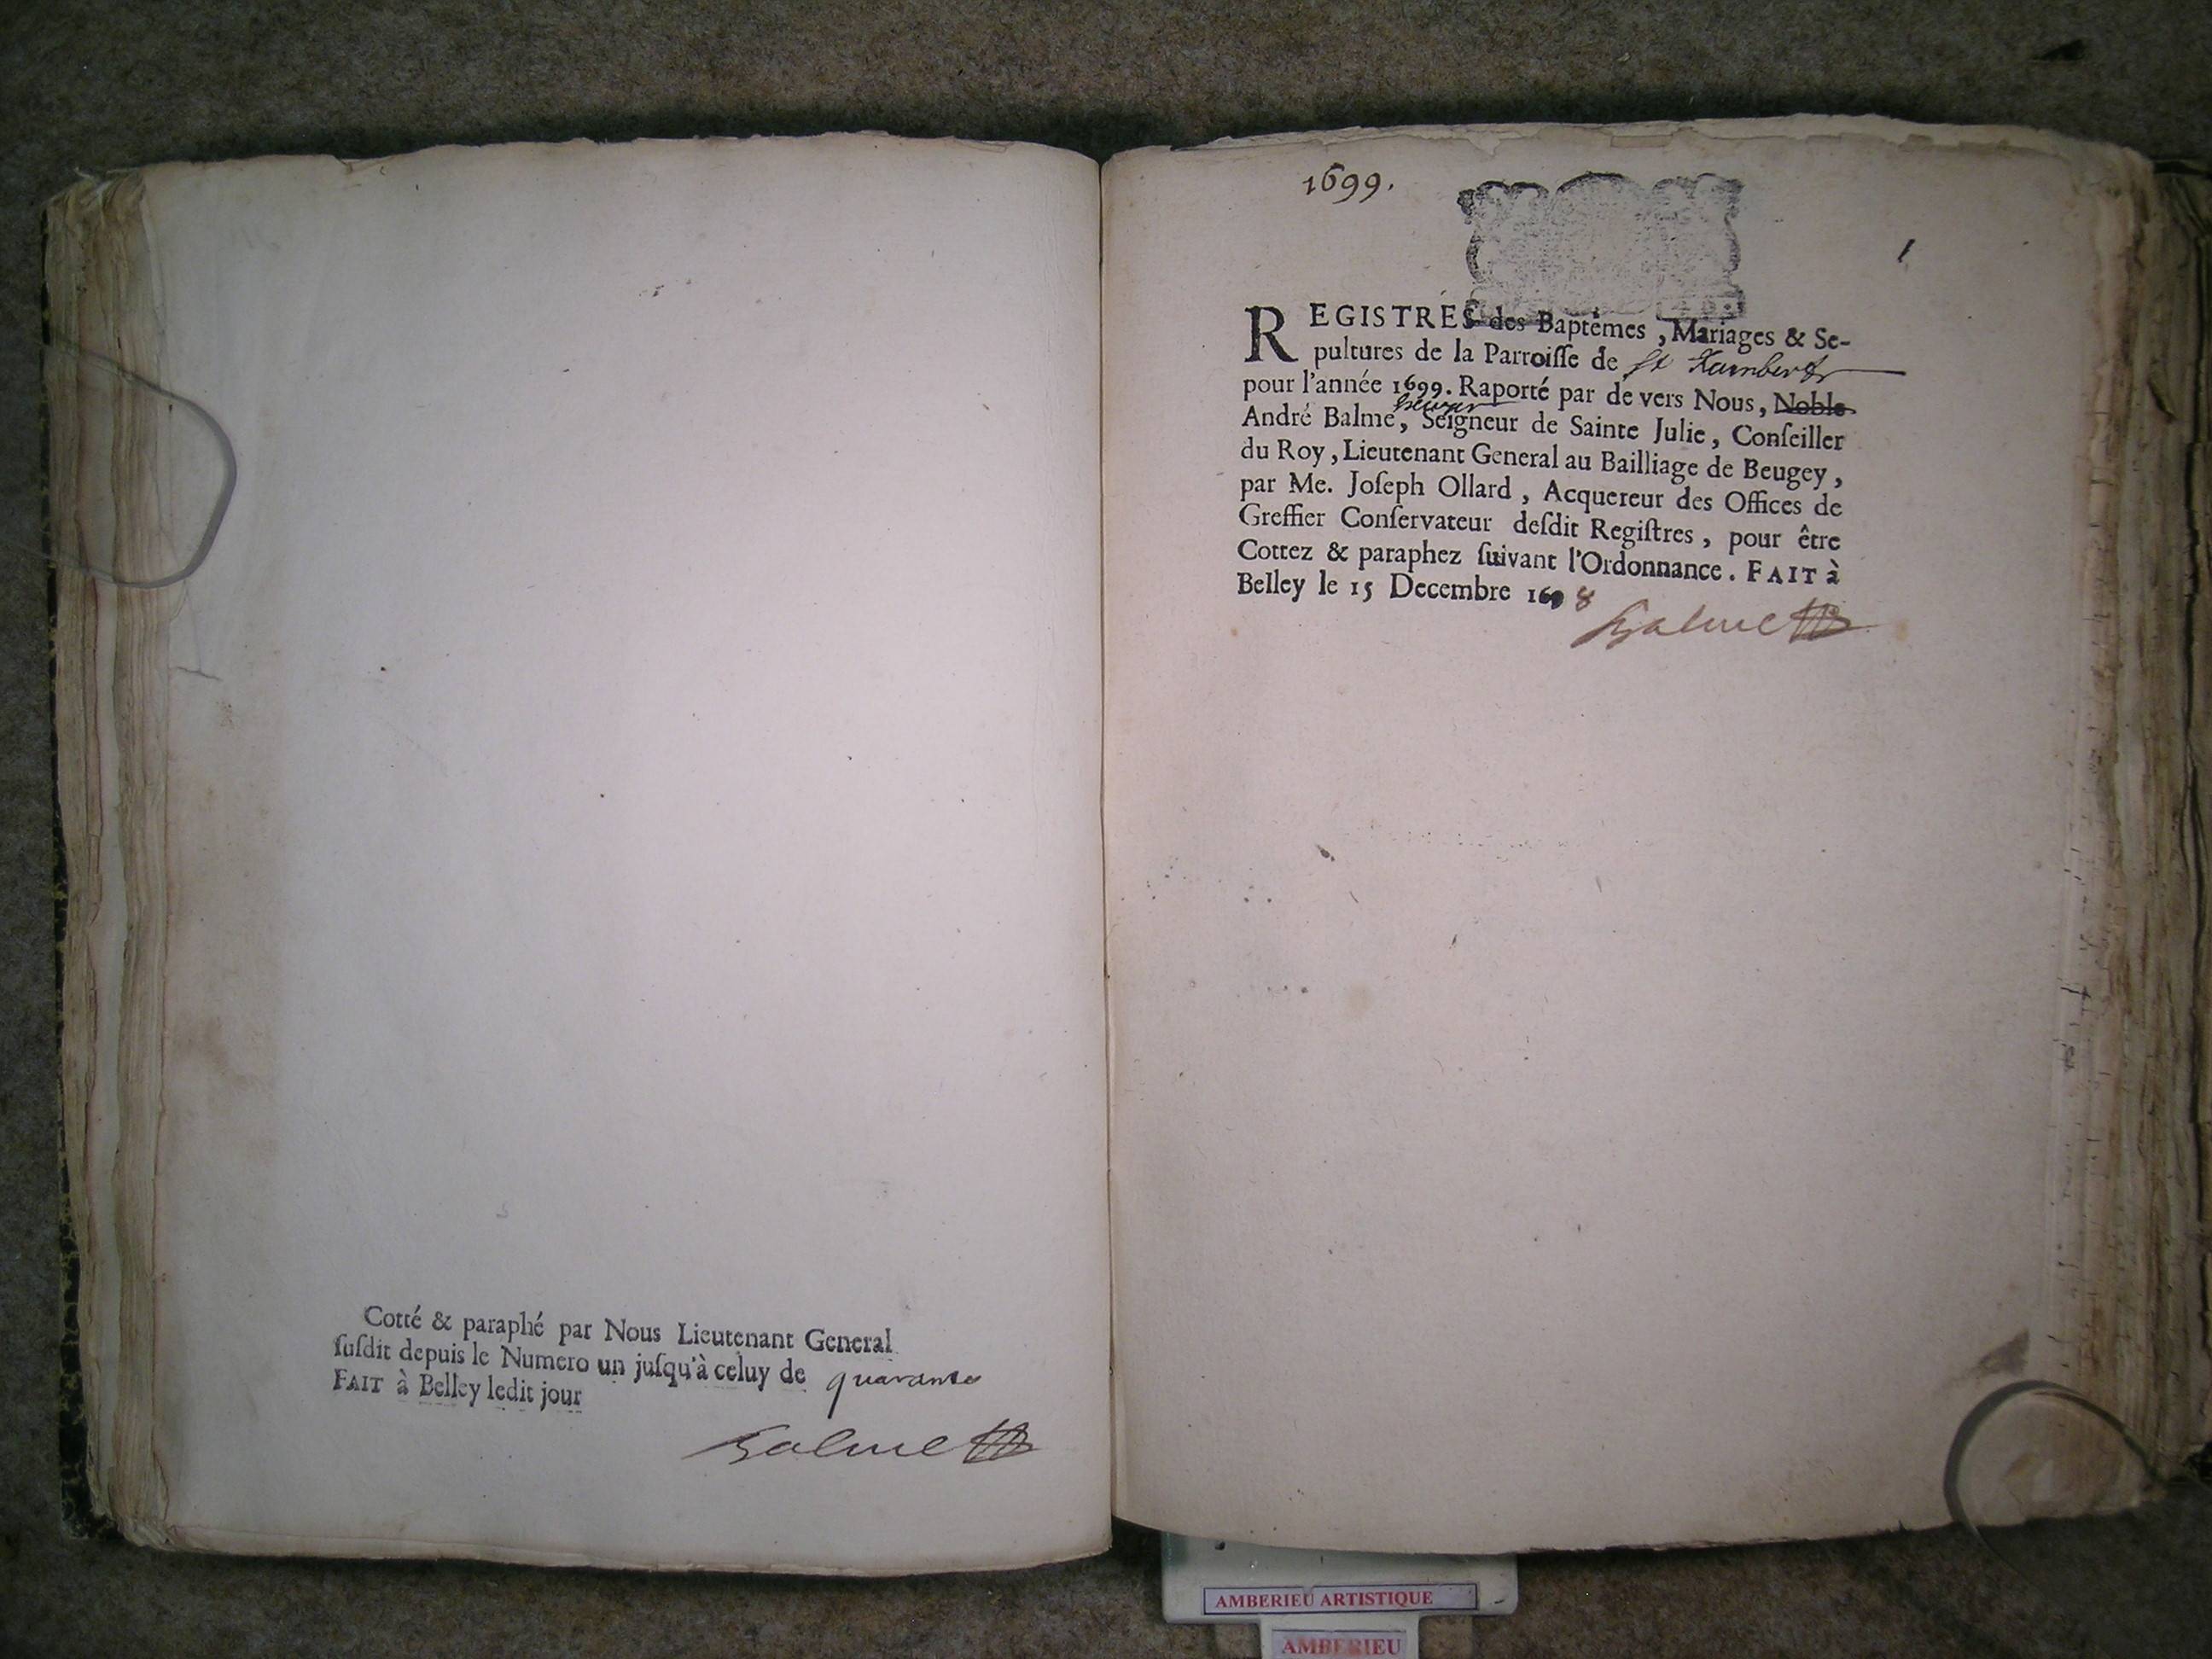 Cotté & paraphé par Nous Lieutenant General
ſuſdit depuis le Numero un juſqu'à celuy de quarante
FAIT à Belley ledit jour
Balme
1699.
1
REGISTRES des Baptêmes, Mariages & Se-
pultures de la Parroiſſe de St Rambert
pour l'année 1699. Raporté par de vers Nous, Noble
André Balme, Seigneur de Sainte Julie, Conſeiller
du Roy, Lieutenant General au Bailliage de Beugey,
par Me. Joſeph Ollard, Acquereur des Offices de
Greffier Conſervateur deſdit Regiſtres, pour être
Cottez & paraphez ſuivant l'Ordonnance. FAIT à
Belley le 15 Decembre 1698
Balme
AMBERIEU ARTISTIQUE
AMBERIEU